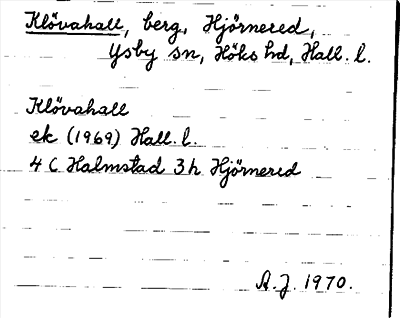 Klövahall, berg, Hjörnered,
Ysby sn, Höks hd, Hall. l.
Klövahall
ek (1969) Hall. l.
4 C Halmstad 3 h Hjörnered
A.J. 1970.